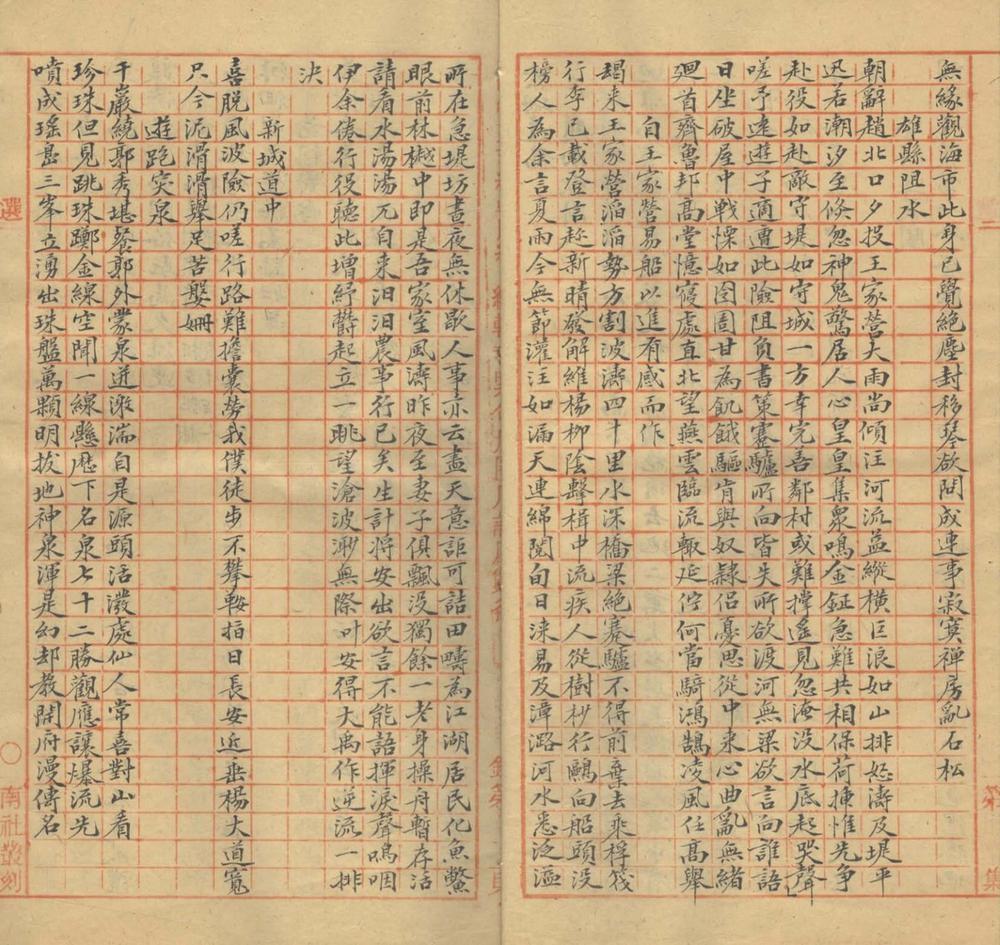 無緣觀海市此身已覺絕塵封移琴欲問成連事寂寞禅房亂石松
雄縣阻水
朝辭趙北口夕投王家营大雨尚傾注河流益縱橫巨浪如山排怒濤及堤平
迅若潮汐至倏忽神鬼驚居人心皇皇集衆鳴金鉦急難共相保荷捶惟先争
赴役如赴敵守堤如守城一方幸完吾鄰村或難撑遙見忽淹没水底起哭聲
嗟予遠遊子適遭此險阻負書策蹇驢所向皆失所欲渡河無梁欲言向誰語
日坐破屋中戰慄如囹圄甘為飢餓驅肯與奴隸侣憂思從中来心曲亂無緒
廻首齊魯邦高堂憶寝處直北望燕雲臨流輒延佇何當騎鴻鵠凌風任高舉
自王家營易船以進有感而作
朅来王家營滔滔勢方割波濤四十里水深橋梁絶蹇驢不得前棄去乘桴筏
行李已載登言趁新晴發解維楊柳陰擊楫中流疾人從樹杪行鷗向船頭没
榜人為余言夏雨今無節灌注如漏天連綿閱旬日淶易及漳潞河水悉泛溢
所在急堤坊晝夜無休歇人事亦云盡天意詎可詰田疇為江湖居民化魚鱉
眼前林樾中即是吾家室風濤昨夜至妻子俱飄没獨餘一老身操舟暫存活
請看水湯湯兀自来汨汨農事行已矣生計將安出欲言不能語揮淚聲嗚咽
伊余倦行役聽此增紆欝起立一眺望滄波渺無際吁安得大禹作逆流一排
決
新城道中
喜脱風波險仍嗟行路難擔囊勞我僕徒步不攀鞍指日長安近垂楊大道寬
只今泥滑滑舉足苦媻姍
遊跑突泉
千巖繞郭秀堪餐郭外蒙泉迸潄湍自是源頭活潑處仙人常喜對山看
珍珠但見跳珠躑金線空聞一線懸歷下名泉七十二勝觀應讓爆流先
噴成瑶島三峯立湧出珠盤萬顆明拔地神泉渾是幻却教開府漫傳名
二
第
集
選
〇
南社叢刻